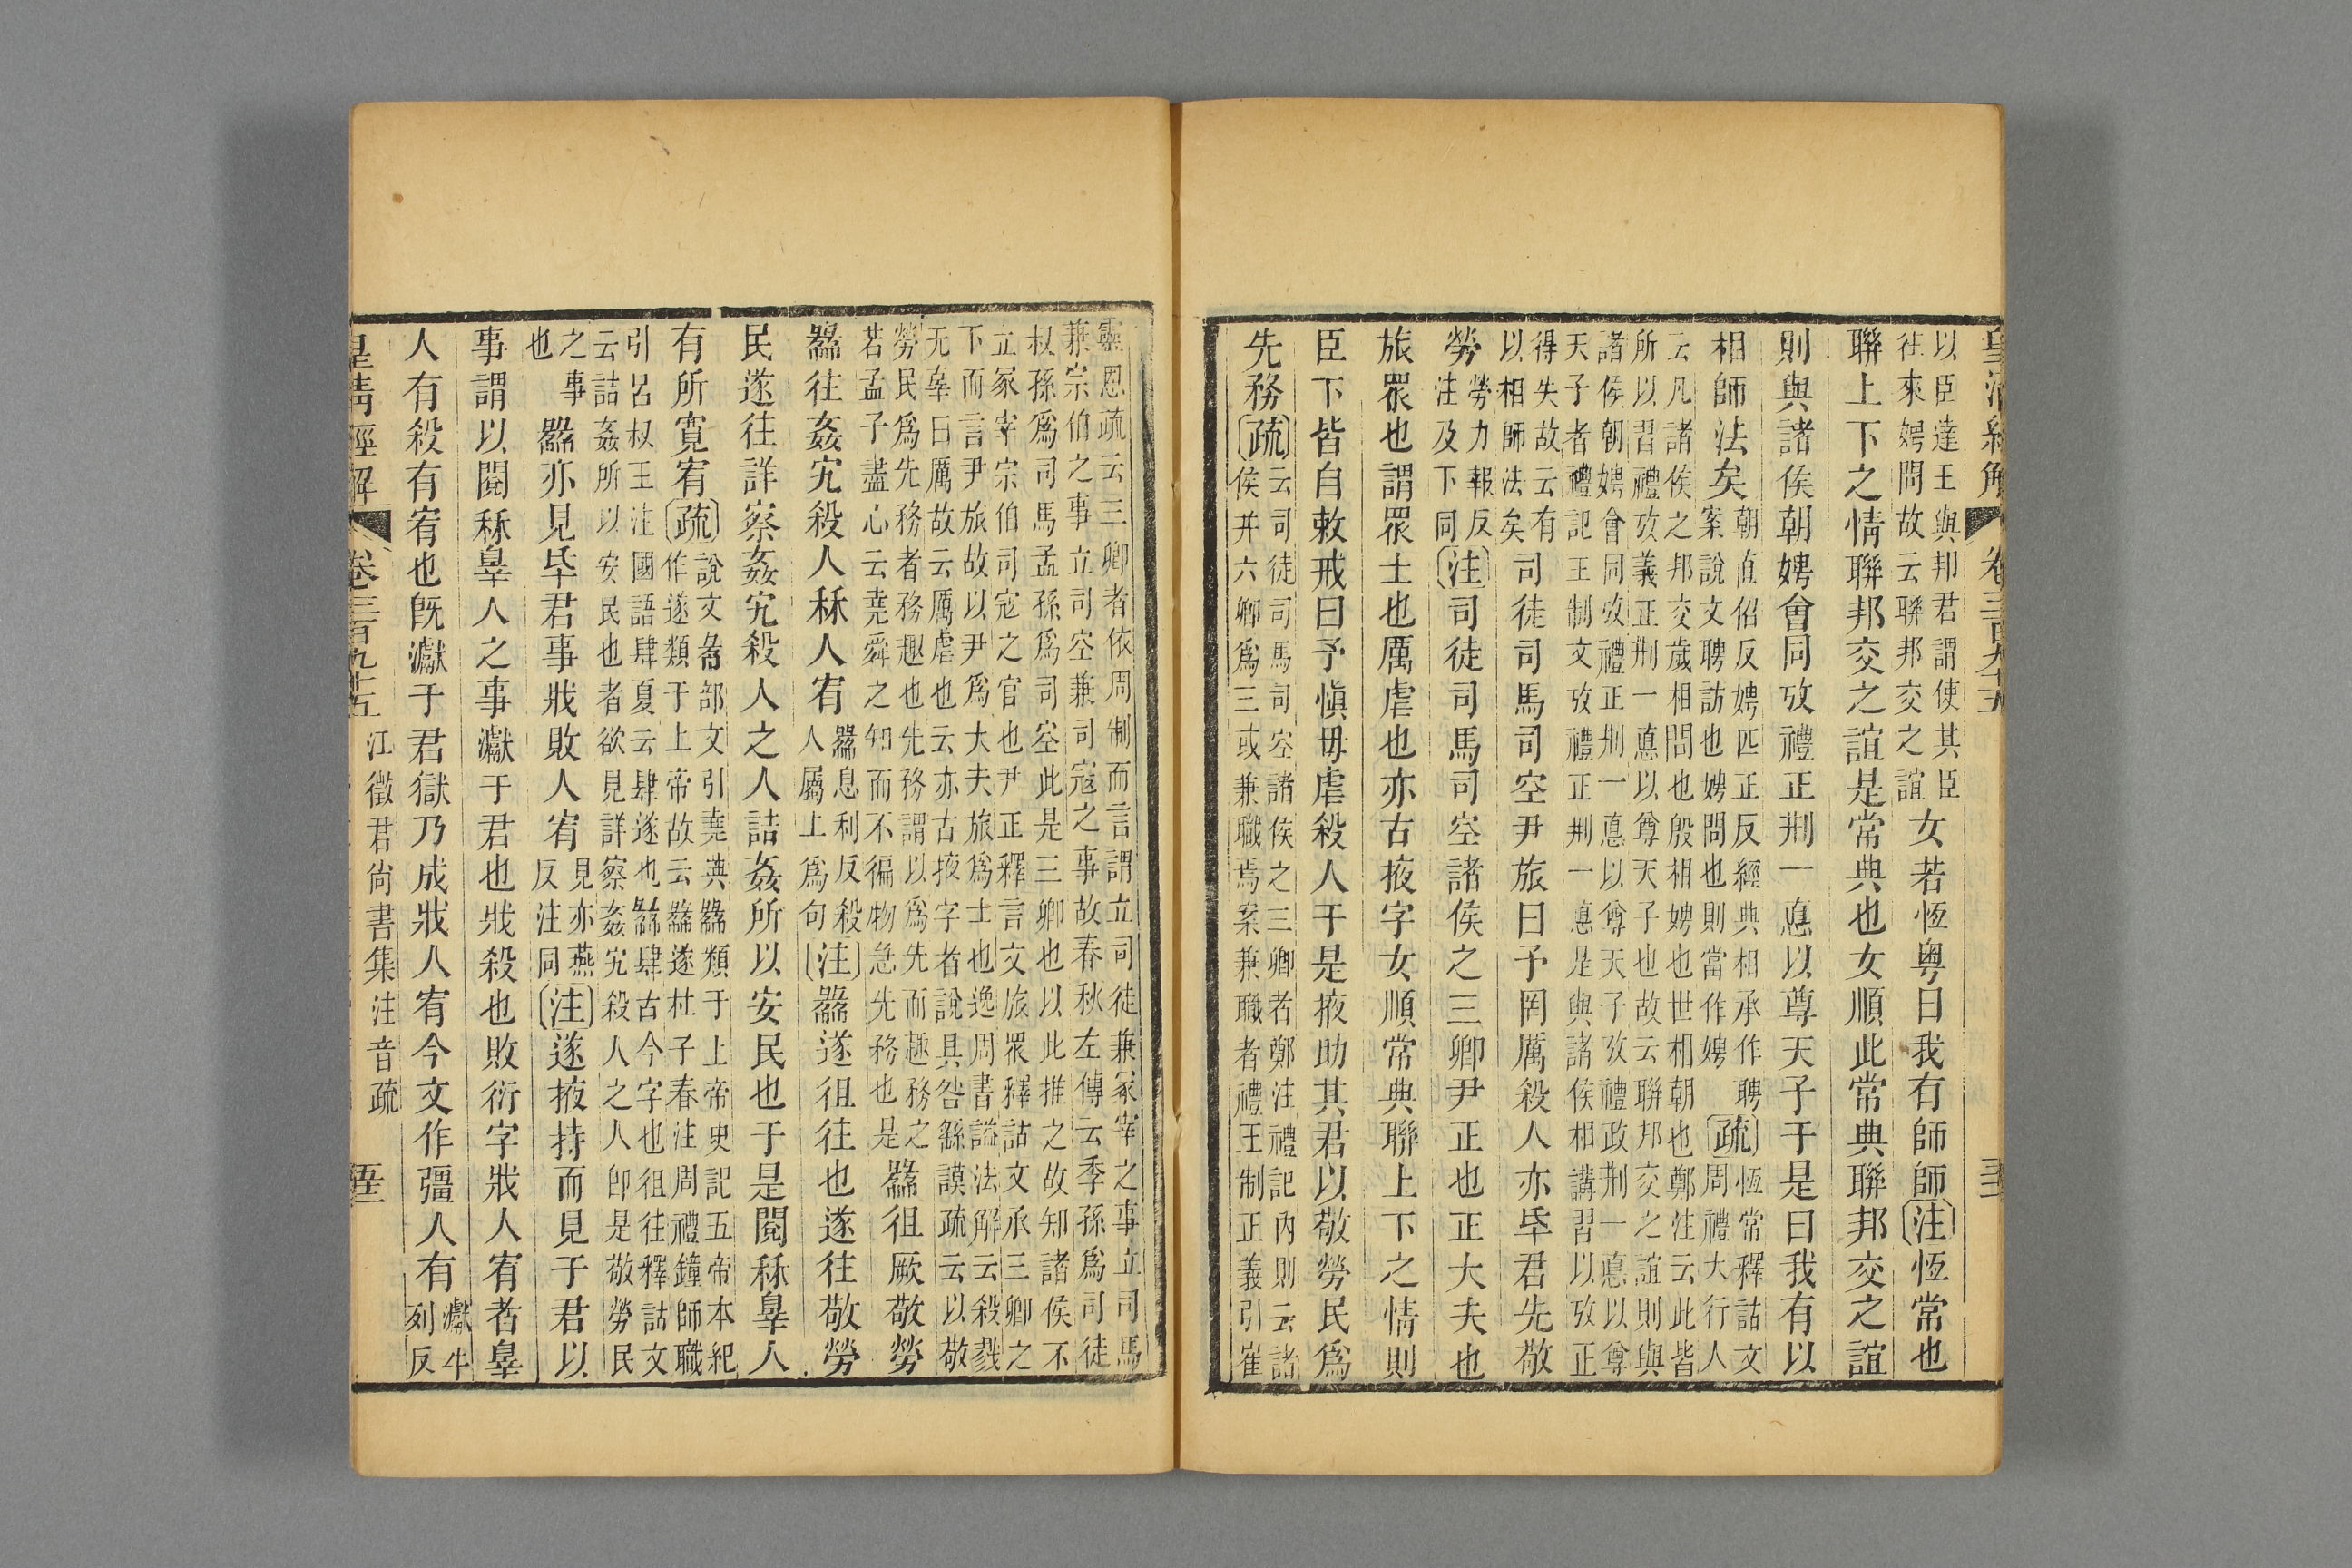 皇清經解
卷三百九十五
以臣達王與邦君謂使其臣
往來娉問故云聯邦交之誼
女若恆粵曰我有師師〔注〕恆常也
聯上下之情聯邦交之誼是常典也女順此常典聯邦交之誼
則與諸侯朝娉會同攷禮正𠛬一悳以尊天子于是曰我有以
相師法矣
朝直侶反娉匹正反經典相承作聘
案說文聘訪也娉問也則當作娉
〔疏〕
恆常釋詁文
周禮大行人
云凡諸侯之邦交歲相問也殷相娉也世相朝也鄭注云此皆
所以習禮攷義正𠛬一悳以尊天子也故云聯邦交之誼則與
諸侯朝娉會同攷禮正𠛬一悳以尊天子攷禮政𠛬一悳以尊
天子者禮記王制文攷禮正𠛬一悳是與諸侯相講習以攷正
得失故云有
以相師法矣
司徒司馬司空尹旅曰予罔厲殺人亦氒君先敬
勞
勞力報反
注及下同
〔注〕司徒司馬司空諸侯之三卿尹正也正大夫也
旅眾也謂眾士也厲虐也亦古掖字女順常典聯上下之情則
臣下皆自敕戒曰予愼毋虐殺人于是掖助其君以敬勞民爲
先務〔疏〕
云司徒司馬司空諸侯之三卿者鄭注禮記內則云諸
侯幷六卿爲三或兼職焉案兼職者禮王制正義引崔
靈恩疏云三卿者依周制而言謂立司徒兼冢宰之事立司馬
兼宗伯之事立司空兼司寇之事故春秋左傳云季孫爲司徒
叔孫爲司馬孟孫爲司空此是三卿也以此推之故知諸侯不
立冢宰宗伯司寇之官也尹正釋言文旅眾釋詁文承三卿之
下而言尹旅故以尹爲大夫旅爲士也逸周書謚法解云殺戮
无辠曰厲故云厲虐也云亦古掖字者說具咎繇謨疏云以敬
勞民爲先務者務趣也先務謂以爲先而趣務之
若孟子盡心云堯舜之知而不徧物急先務也是
䌛徂厥敬勞
䌛往姦宄殺人秝人宥
䌛息利反殺
人屬上爲句
〔注〕䌛遂徂往也遂往敬勞
民遂往詳察姦宄殺人之人詰姦所以安民也于是閱秝辠人
有所寬宥〔疏〕
引堯典䌛類于上帝史記五帝本紀
作遂類于上帝故云䌛遂杜子春注周禮鐘師職
引呂叔王注國語肆夏云肆遂也䌛肆古今字也徂往釋詁文
云詰姦所以安民也者欲見詳察姦宄殺人之人卽是敬勞民
之事
也
䌛亦見氒君事戕敗人宥
見亦燕
反注同
〔注〕遂掖持而見于君以
事謂以閱秝辠人之事瀗于君也戕殺也敗衍字戕人宥者辠
人有殺有宥也旣瀗于君獄乃成戕人宥今文作彊人有
瀗牛
列反
皇清經解
卷三百九十五
江徵君尙書集注音疏